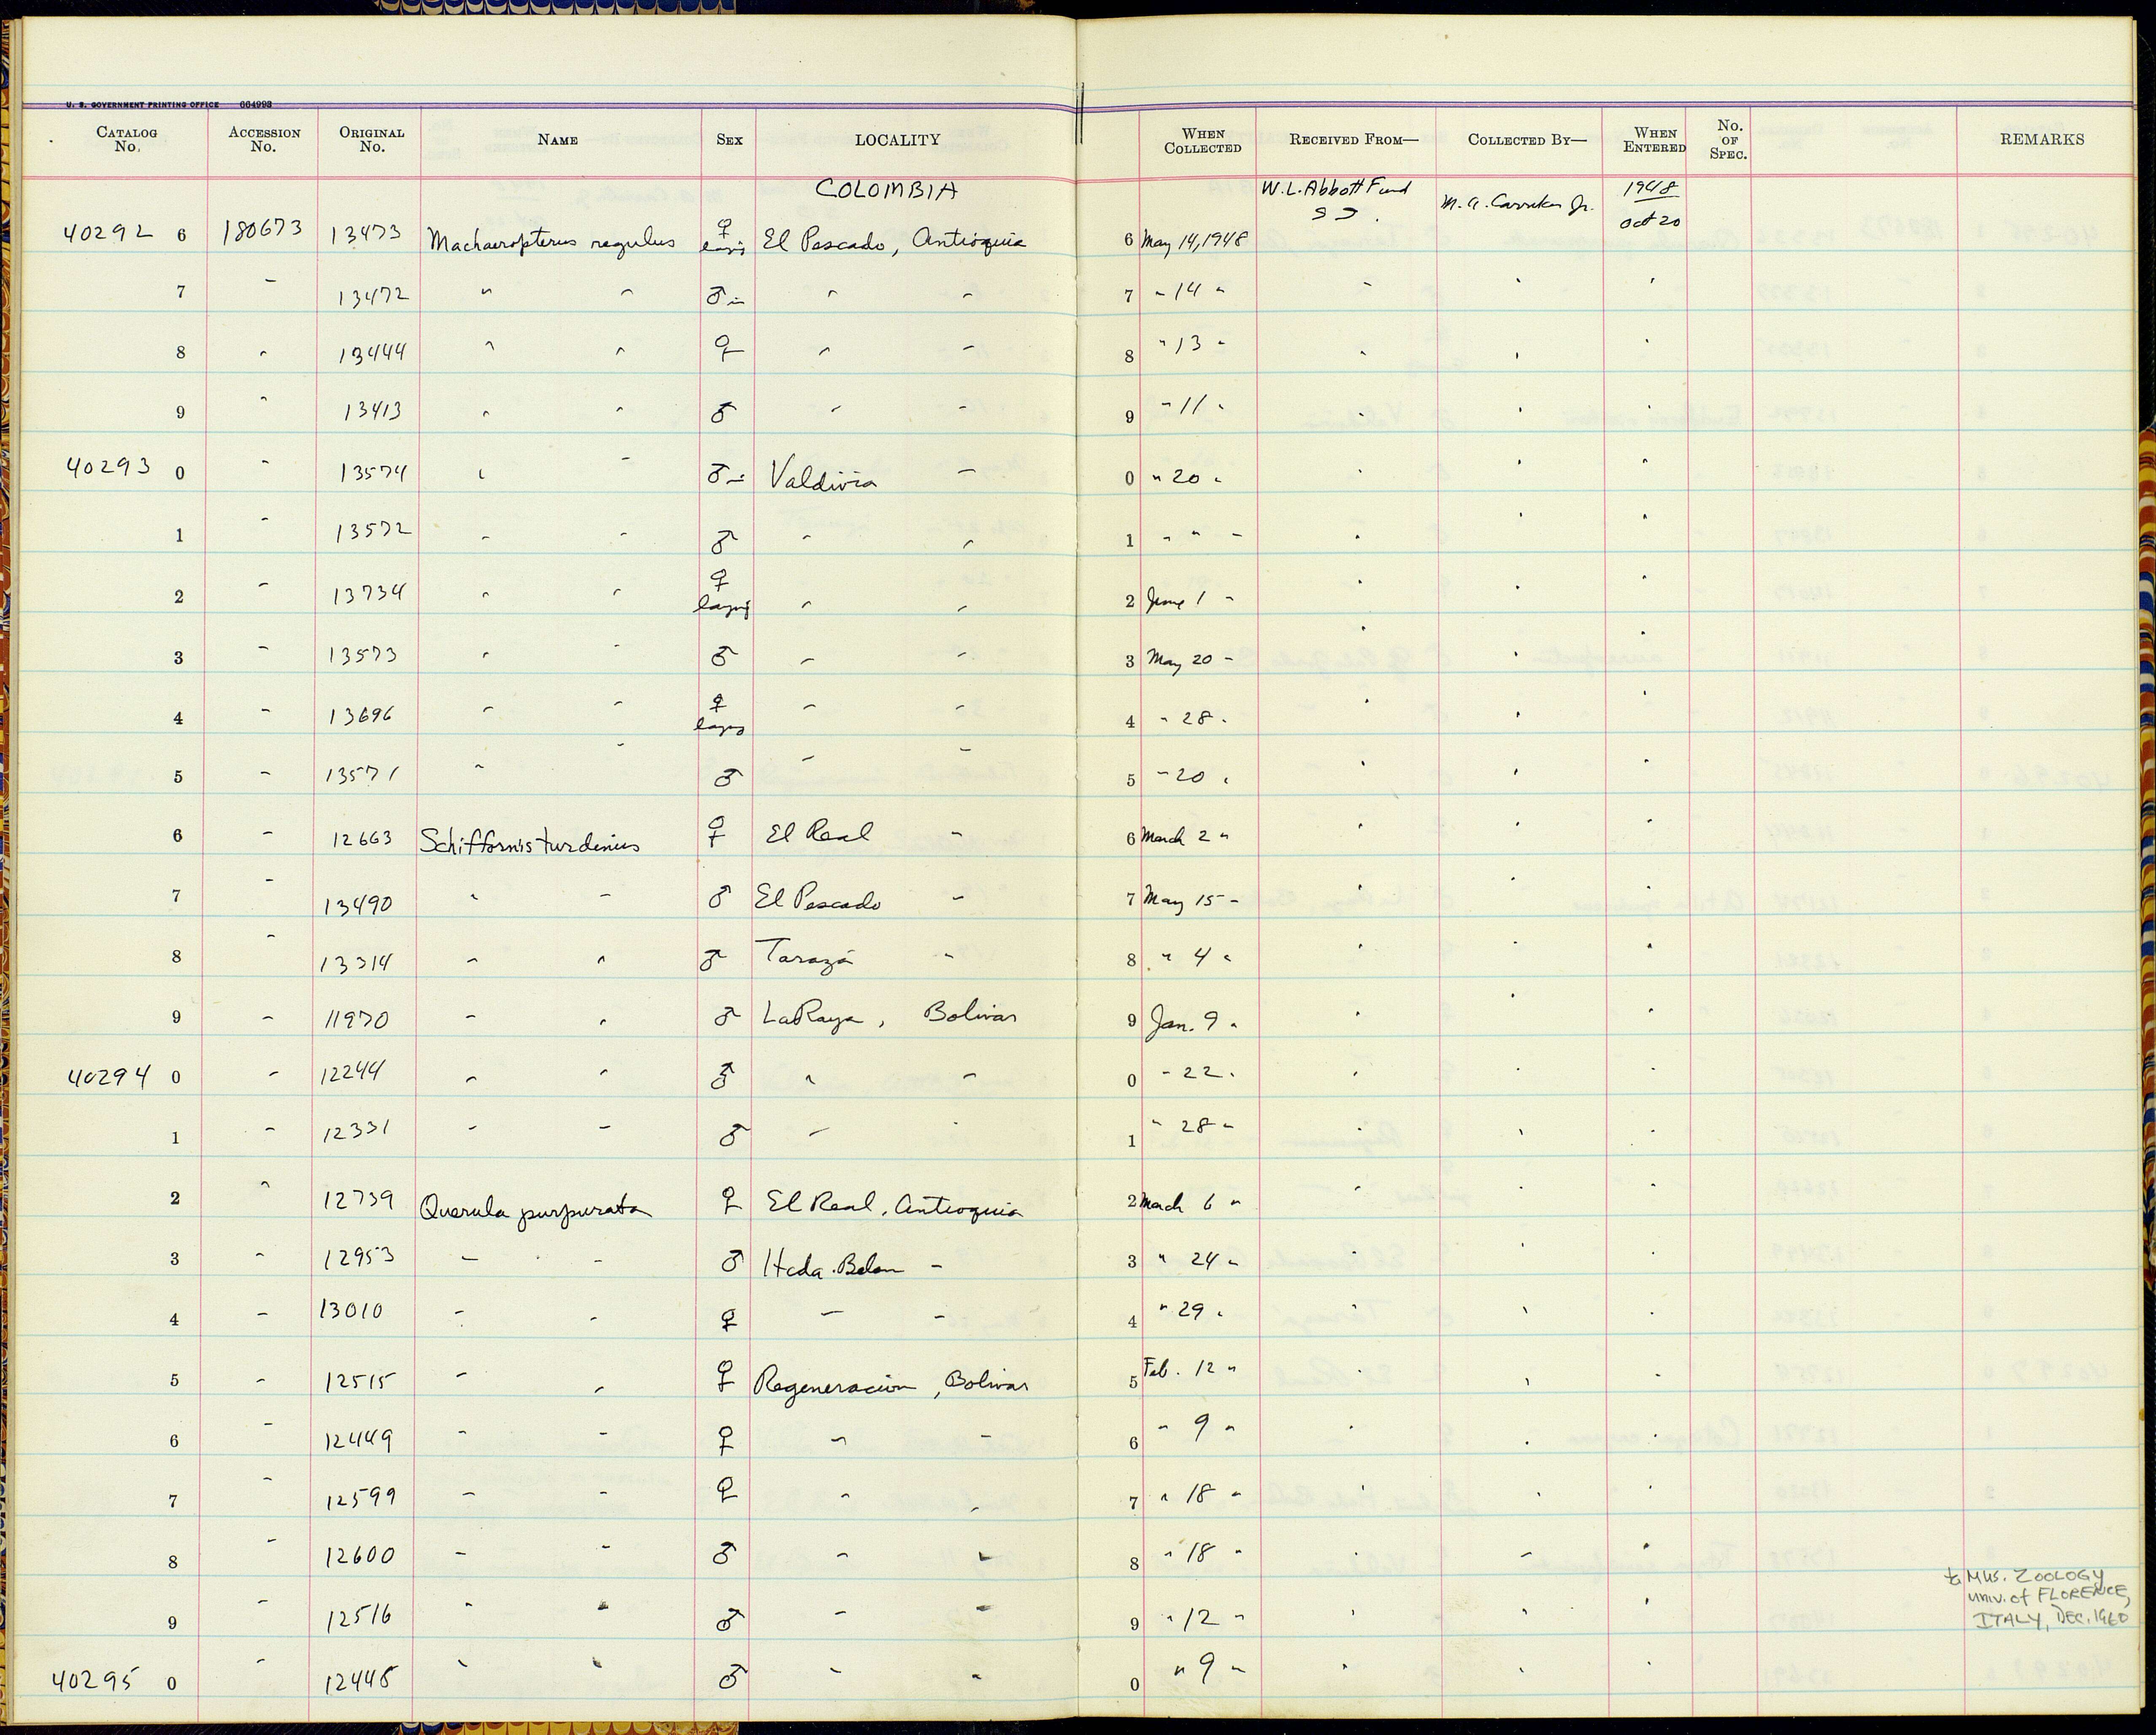 U. S. GOVERNMENT PRINTING OFFICE 664993
CATALOG No. ACCESSION No. ORIGINAL No. NAME SEX LOCALITY WHEN COLLECTED RECEIVED FROM— COLLECTED BY— WHEN ENTERED No. OF SPEC. REMARKS
COLOMBIA W. L. Abbott Fund M. A. Carriker Jr. 1948
40292 6 180673 13473 Machaeropterus regulus ♀ El Pescado, Antioquia 6 May 14, 1948 Oct 20
7 " 13472 " " ♂ " " 7 " 14 " " " "
8 " 13444 " " ♀ " " 8 " 13 " " " "
9 " 13413 " " ♂ " " 9 " 11 " " " "
40293 0 " 13574 " " ♂ Valdivia " 0 " 20 " " " "
1 " 13572 " " ♂ " " 1 " " " " " "
2 " 13734 " " ♀ laying " " 2 June 1 " " " "
3 " 13573 " " ♂ " " 3 May 20 " " " "
4 " 13696 " " ♀ laying " " 4 " 28 " " " "
5 " 13571 " " ♂ " " 5 " 20 " " " "
6 " 12663 Schiffornis turdinus ♀ El Real " 6 March 2 " " " "
7 " 13490 " " ♂ El Pescado " 7 May 15 " " " "
8 " 13314 " " ♂ Tarazá " 8 " 4 " " " "
9 " 11970 " " ♂ La Raya, Bolivar 9 Jan. 9 " " " "
40294 0 " 12244 " " ♂ " " 0 " 22 " " " "
1 " 12331 " " ♂ " " 1 " 28 " " " "
2 " 12739 Querula purpurata ♀ El Real, Antioquia 2 March 6 " " " "
3 " 12953 " " ♂ Hcda. Belen " 3 " 24 " " " "
4 " 13010 " " ♀ " " 4 " 29 " " " "
5 " 12515 " " ♀ Regeneracion, Bolivar 5 Feb. 12 " " " "
6 " 12449 " " ♀ " " 6 " 9 " " " "
7 " 12599 " " ♀ " " 7 " 18 " " " "
8 " 12600 " " ♂ " " 8 " 18 " " " "
9 " 12516 " " ♂ " " 9 " 12 " " " " to MUS. ZOOLOGY
Univ. of FLORENCE,
ITALY, DEC. 1960
40295 0 " 12448 " " ♂ " " 0 " 9 " " " "